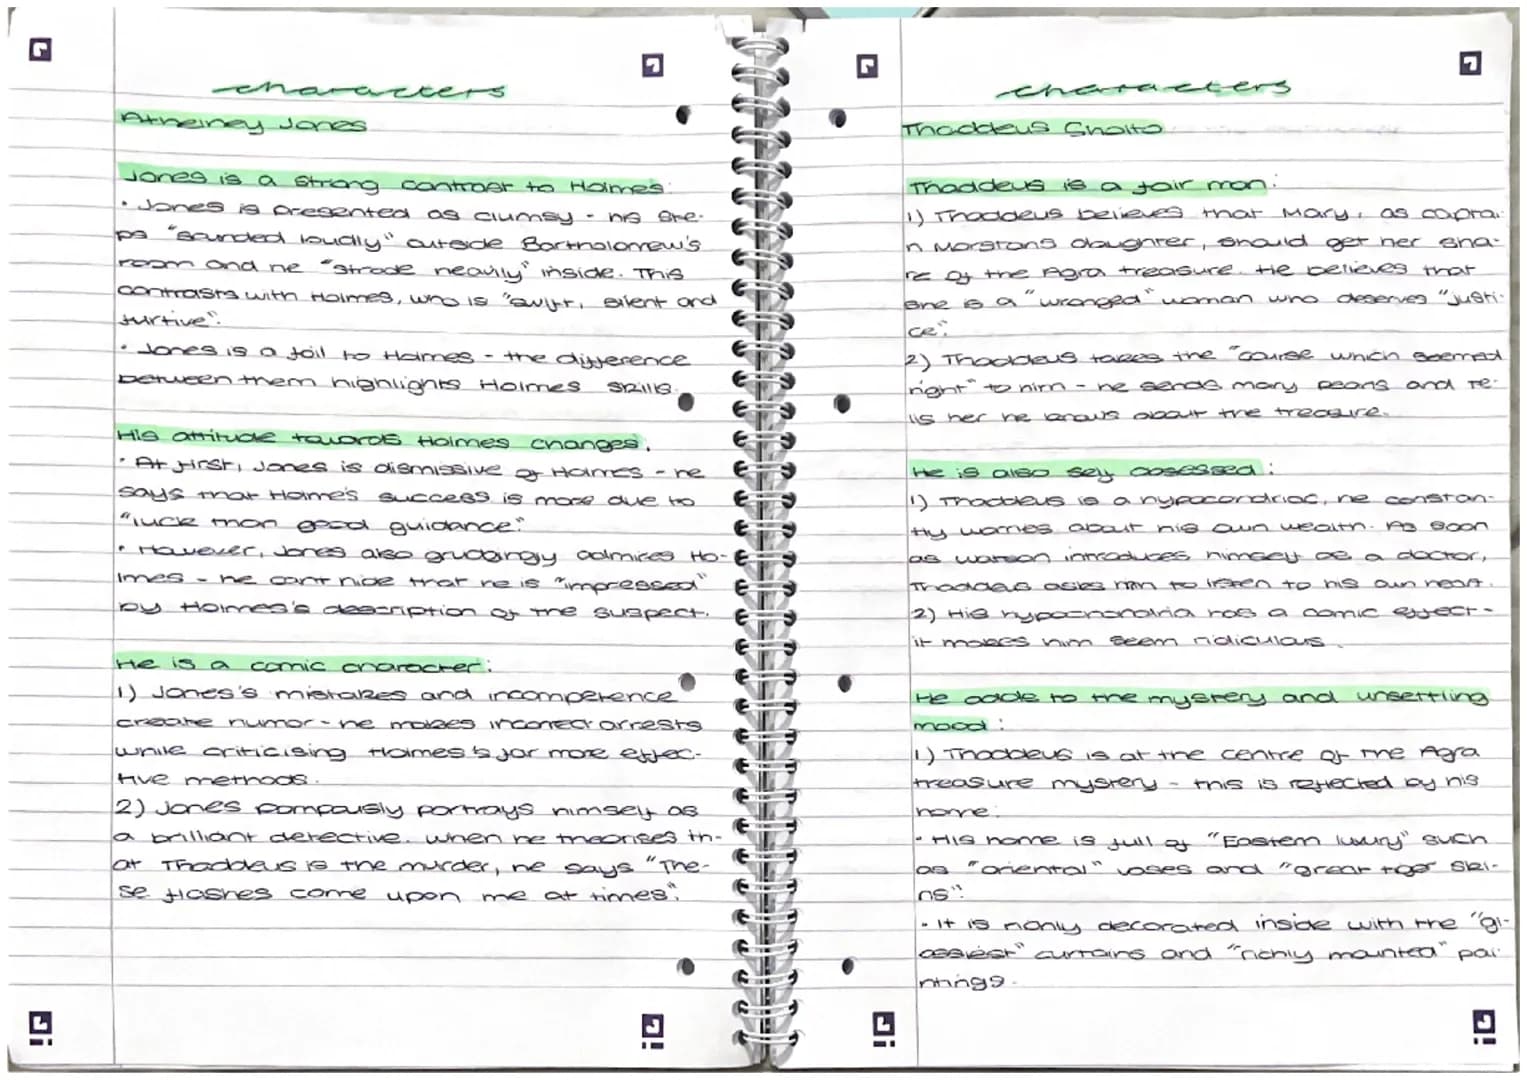 characters
Athelney Jones
Jones is a strong contrast to Holmes:
· Jones is presented as clumsy - his ste-
ps "sounded loudly" outside Bartholomew's
room and he "strode heavily" inside. This
contrasts with Holmes, who is "swift, silent and
furtive".
· Jones is a foil to Holmes - the difference
between them highlights Holmes skills.
His attitude towards Holmes changes.
· At first, Jones is dismissive of Holmes - he
says that Holme's success is more due to
"luck than good guidance".
· However, Jones also grudgingly admires Ho-
lmes - he can't hide that he is "impressed"
by Holmes's description of the suspect.
He is a comic character:
1) Jones's mistakes and incompetence
create humor - he makes incorrect arrests
while criticising Holmes's far more effec-
tive methods.
2) Jones pompously portrays himself as
a brilliant detective. When he theorises th-
at Thaddeus is the murder, he says "The-
se flashes come upon me at times".
characters
Thaddeus Sholto
Thaddeus is a fair man:
1) Thaddeus believes that Mary, as captai-
n Morstans daughter, should get her sha-
re of the Agra treasure. He believes that
she is a "wronged" woman who deserves "justi-
ce".
2) Thaddeus takes the "course which seemed
right" to him - he sends mary pearls and te-
lls her he knows about the treasure.
He is also self obsessed:
1) Thaddeus is a hypocondriac, he constan-
tly worries about his own wealth. As soon
as watson introduces himself as a doctor,
Thaddeus asks him to listen to his own heart.
2) His hypochondria has a comic effect -
it makes him seem ridiculous.
He adds to the mystery and unsettling
mood:
1) Thaddeus is at the centre of the Agra
treasure mystery - this is reflected by his
home:
- His home is full of "Eastern luxury" such
as "oriental" vases and "great tiger ski-
ns".
- It is richly decorated inside with the "gl-
ossiest" curtains and "richly mounted" pai-
ntings.